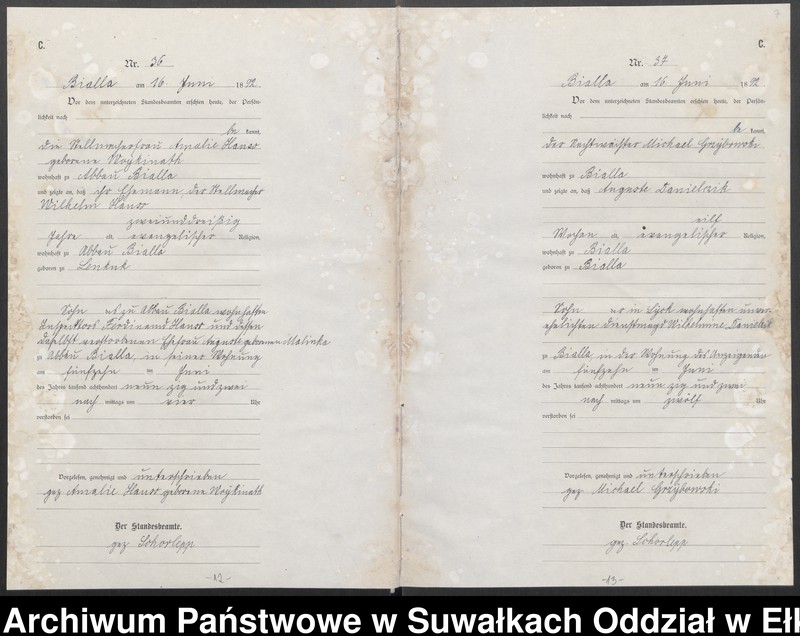 C.
Nr. 36
Bialla am 16 Juni 1892.
Vor dem unterzeichneten Standesbeamten erschien heute, der Persön-
lichkeit nach
be kannt,
die Stellmacherfrau Amalie Hauss
geborene Woytkinath
wohnhaft zu Abbau Bialla
und zeigte an, daß ihr Ehemann, der Stellmacher
Wilhelm Hauss
zweiunddreißig
Jahre alt, evangelischer Religion,
wohnhaft zu Abbau Bialla
geboren zu
Sohn des zu Abbau Bialla wohnhaften
Inspectors Ferdinand Hauss und dessen
daselbst verstorbenen Ehefrau Auguste geborenen Malinka
zu Abbau Bialla, in seiner Wohnung
am fünfzehn ten Juni
des Jahres tausend achthundert neun zig und zwei
nach mittags um vier Uhr
verstorben sei
Vorgelesen, genehmigt und unterschrieben
gez Amalie Hauss geborene Woytkinath
Der Standesbeamte.
gez Schorlepp
-12-
7
C.
Nr. 37
Bialla am 16 Juni 1892
Vor dem unterzeichneten Standesbeamten erschien heute, der Persön-
lichkeit nach
be kannt,
der Nachtwächter Michael Grzybowski
wohnhaft zu Bialla
und zeigte an, daß Auguste Danielzik
eilf
Wochen alt, evangelischer Religion,
wohnhaft zu Bialla
geboren zu Bialla
Sohn der in Lyck wohnhaften unver-
ehelichten Dienstmagd Wilhelmine Danielzik
zu Bialla in der Wohnung des Anzeigenden
am fünfzehn ten Juni
des Jahres tausend achthundert neun zig und zwei
nach mittags um zwölf Uhr
verstorben sei
Vorgelesen, genehmigt und unterschrieben
gez Michael Grzybowski
Der Standesbeamte.
gez Schorlepp
-13-
Archiwum Państwowe w Suwałkach Oddział w Ełk